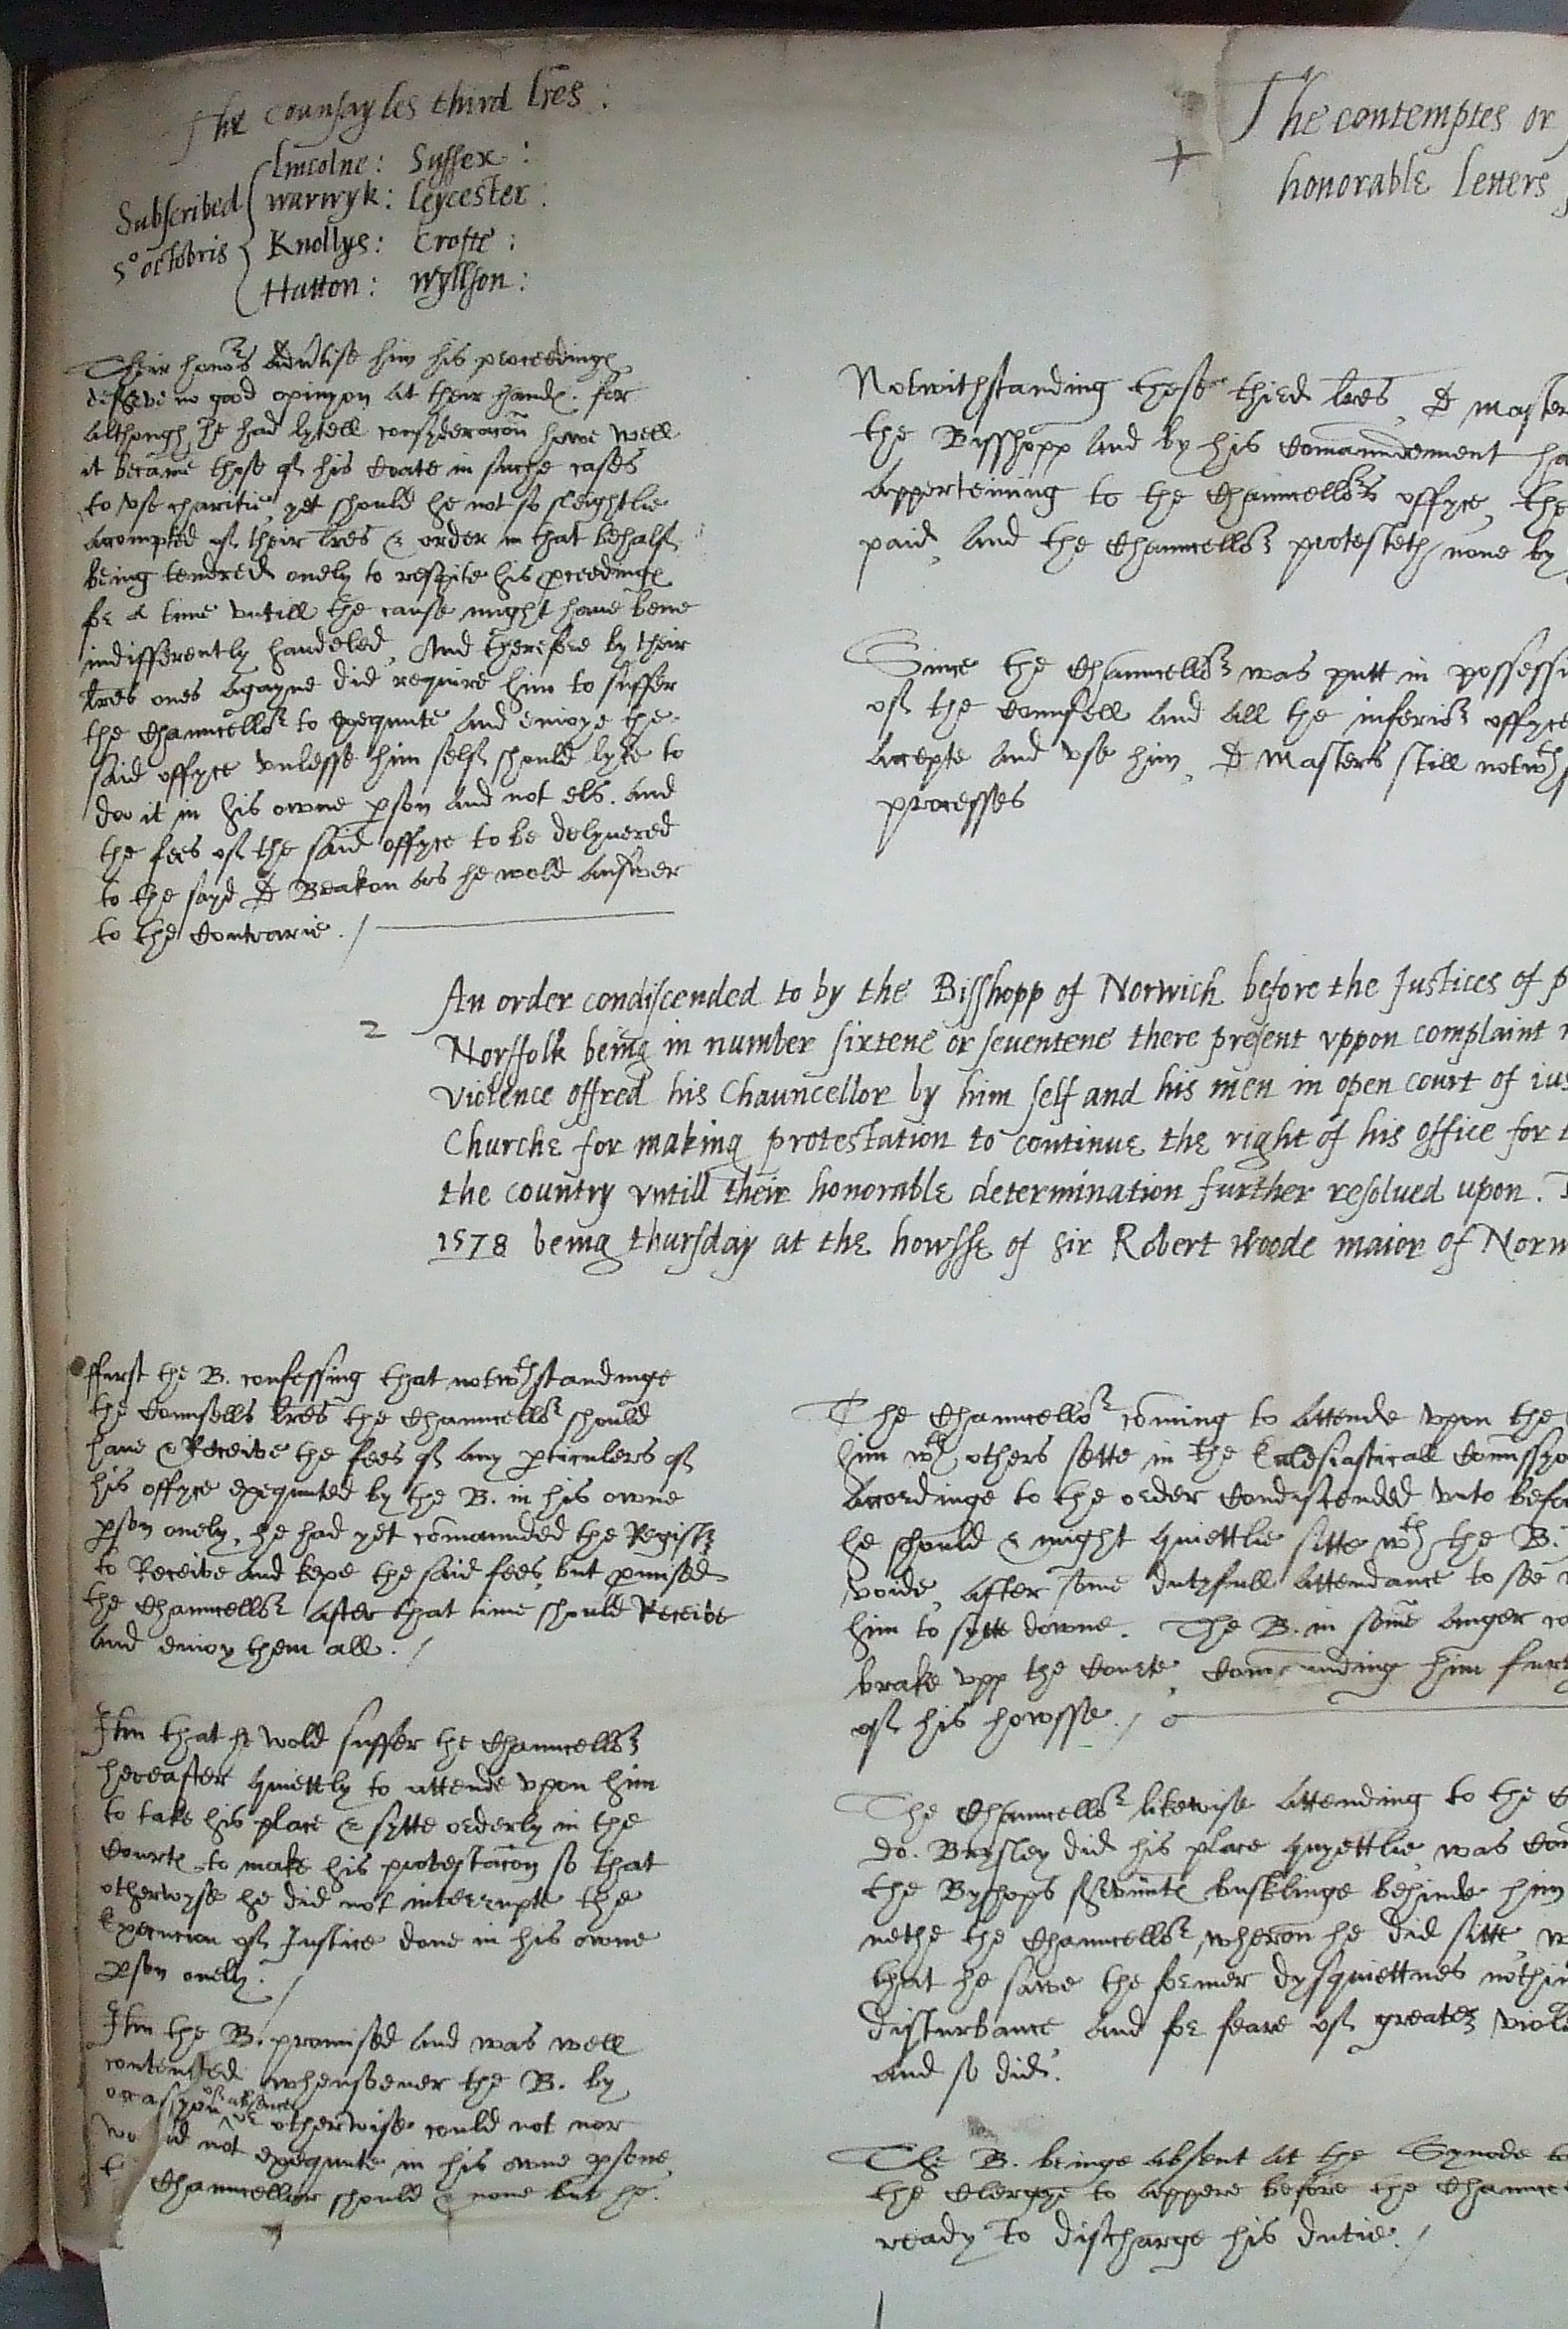 The counsayles third lres :
Subscribed
5° octobris
Lincolne : Sussex :
warwyk : Leycester :
Knollys : Crofte :
Hatton : Wyllson :
Their honors advertise him his proceedinges
deserve no good opinyon at their handes. for
Although he had lytell consyderacon howe well
it became those of his Coate in suche cases
to use charitie, yet should he not so sleightlie
accompted of their lres & order in that behalf
being tendred onely to respite his proceedinges
for a time untill the cause might have bene
indifferently handeled, And therefore by their
lres ones agayne did require him to suffer
the Chauncellor to exequute and enioye the
said offyce unlesse him self should lyke to
do it in his owne pson and not els. And
the fees of the said offyce to be delyuered
to the sayd D Beakon as he wold answer
to the Contrarie. /
The contemptes or
honorable letters
Notwithstanding these third lres, D master
the Bisshopp and by his Comaundement ha
Apperteining to the Chauncellors offyce, the
paid, And the Chauncellor protesteth none by
Since the Chauncellor was putt in possessi
of the Counsell and all the inferior offyce
Accepte and use him, D Masters still notwth s
processes
2 An order condiscended to by the Bisshopp of Norwich before the Justices of p
Norffolk being in number sixtene or seventene there present vppon complaint
violence offred his Chauncellor by him self and his men in open court of ius
Churche for making protestation to continue the right of his office for
the country vntill their honorable determination further resolued upon.
1578 being thursday at the howsse of Sir Robert woode maior of Norw
ffirst the B. confessing that notwthstandinge
the Counsells lres the Chauncellor should
have & Receive the fees of any pticulers of
his offyce exequuted by the B. in his owne
pson onely, he had yet comaunded the Registr
to Receive and kepe the said fees, but pmised
the Chauncellor after that time should Receive
and enioy them all. /
Itm that he wold suffer the Chauncellor
hereafter quiettly to attende vpon him
to take his place & sytte orderly in the
Courte to make his protestacon so that
otherwyse he did not interrupte the
Execucion of Justice done in his owne
pson onely. /
Itm the B. promised and was well
contented whensoever the B. by
occasyon of absence or otherwise could not nor
wo ld not exequute in his owne psone,
t Chauncellor should & none but he.
The Chauncellor coming to Attende vpon the
him wth others sette in the Ecclesiasticall Comissyo
Accordinge to the order Condiscended vnto befo
he should & might quiettlie sitte wth the B.
voide, After some dutyfull Attendance to see
him to sytte downe. The B. in some anger co
brake vpp the Courte, Comaunding him furt
of his howsse. /
The Chauncellor likewise Attending to the C
do. Beysley did his place quyettlie, was Co
the Byshops servuntes buskelinge behinde him
nethe the Chauncellor wheron he did sitte, w
that he sawe the former dysquiettnes nothin
disturbance And for feare of greater viole
and so did.
The B. beinge absent at the Synode to
the Clergye to Appere before the Chaunce
ready to discharge his dutie. /